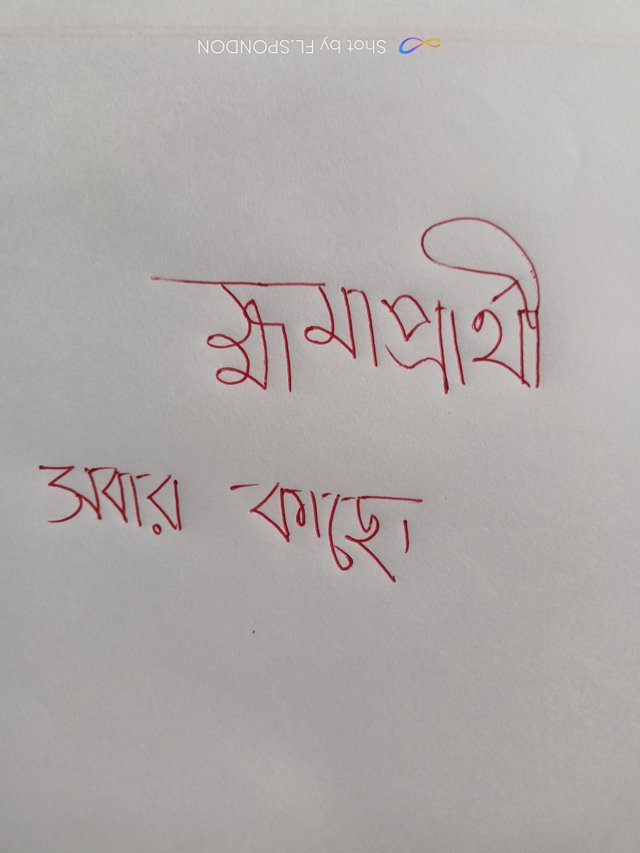 Shot by FL.SPONDON
ক্ষমাপ্রার্থী
সবার কাছে।